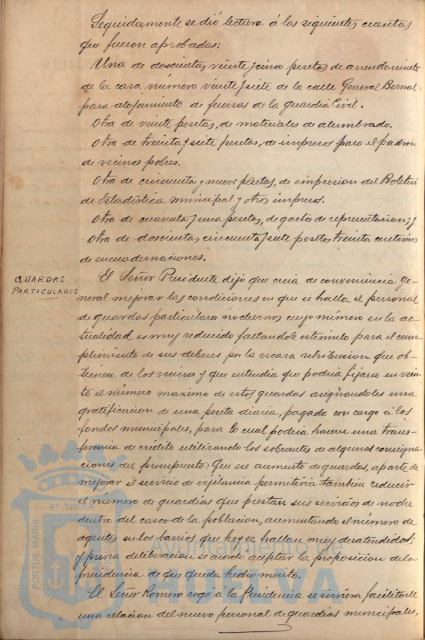 Seguidamente se dió lectura á las siguientes cuentas
que fueron aprobadas:
Una de doscientas veinte y cinco pesetas de arrendamiento
de la casa número veinte y siete de la calle General Bernal
para alojamiento de fuerzas de la guardia Civil.
Otra de veinte pesetas, de materiales de alumbrado.
Otra de treinta y siete pesetas, de impresos para el padron
de vecinos pobres.
Otra de cincuenta y nueve pesetas, de impresion del Boletin
de Estadística municipal y otros impresos.
Otra de cuarenta y una pesetas, de gastos de representacion; y
Otra de doscientas cincuenta y siete pesetas treinta centimos
de encuadernaciones.
GUARDAS
PARTICULARES
El Señor Presidente dijo que creia de conveniencia ge-
neral mejorar las condiciones en que se halla el personal
de guardas particulares nocturnos cuyo número en la ac-
tualidad es muy reducido faltandole estimulo para el cum-
plimiento de sus deberes por la escasa retribucion que ob-
tienen de los vecinos y que entendia que podria fijarse en vein-
te el número maximo de estos guardas asignandoles una
gratificacion de una peseta diaria, pagada con cargo á los
fondos municipales, para lo cual podria hacerse una trans-
ferencia de crédito utilizando los sobrantes de algunas consigna-
ciones del presupuesto: Que ese aumento de guardas, aparte de
mejorar el servicio de vigilancia permitiria tambien reducir
el número de guardias que prestan sus servicios de noche
dentro del casco de la poblacion, aumentando el número de
agentes en los barrios que hoy se hallan muy desatendidos;
y previa deliberacion se acordó aceptar la proposicion de la
presidencia de que queda hecho mérito.
El Señor Romero rogó á la Presidencia se sirviera facilitarle
una relacion del nuevo personal de guardias municipales,
ET TERRA
PORTUS MARIS